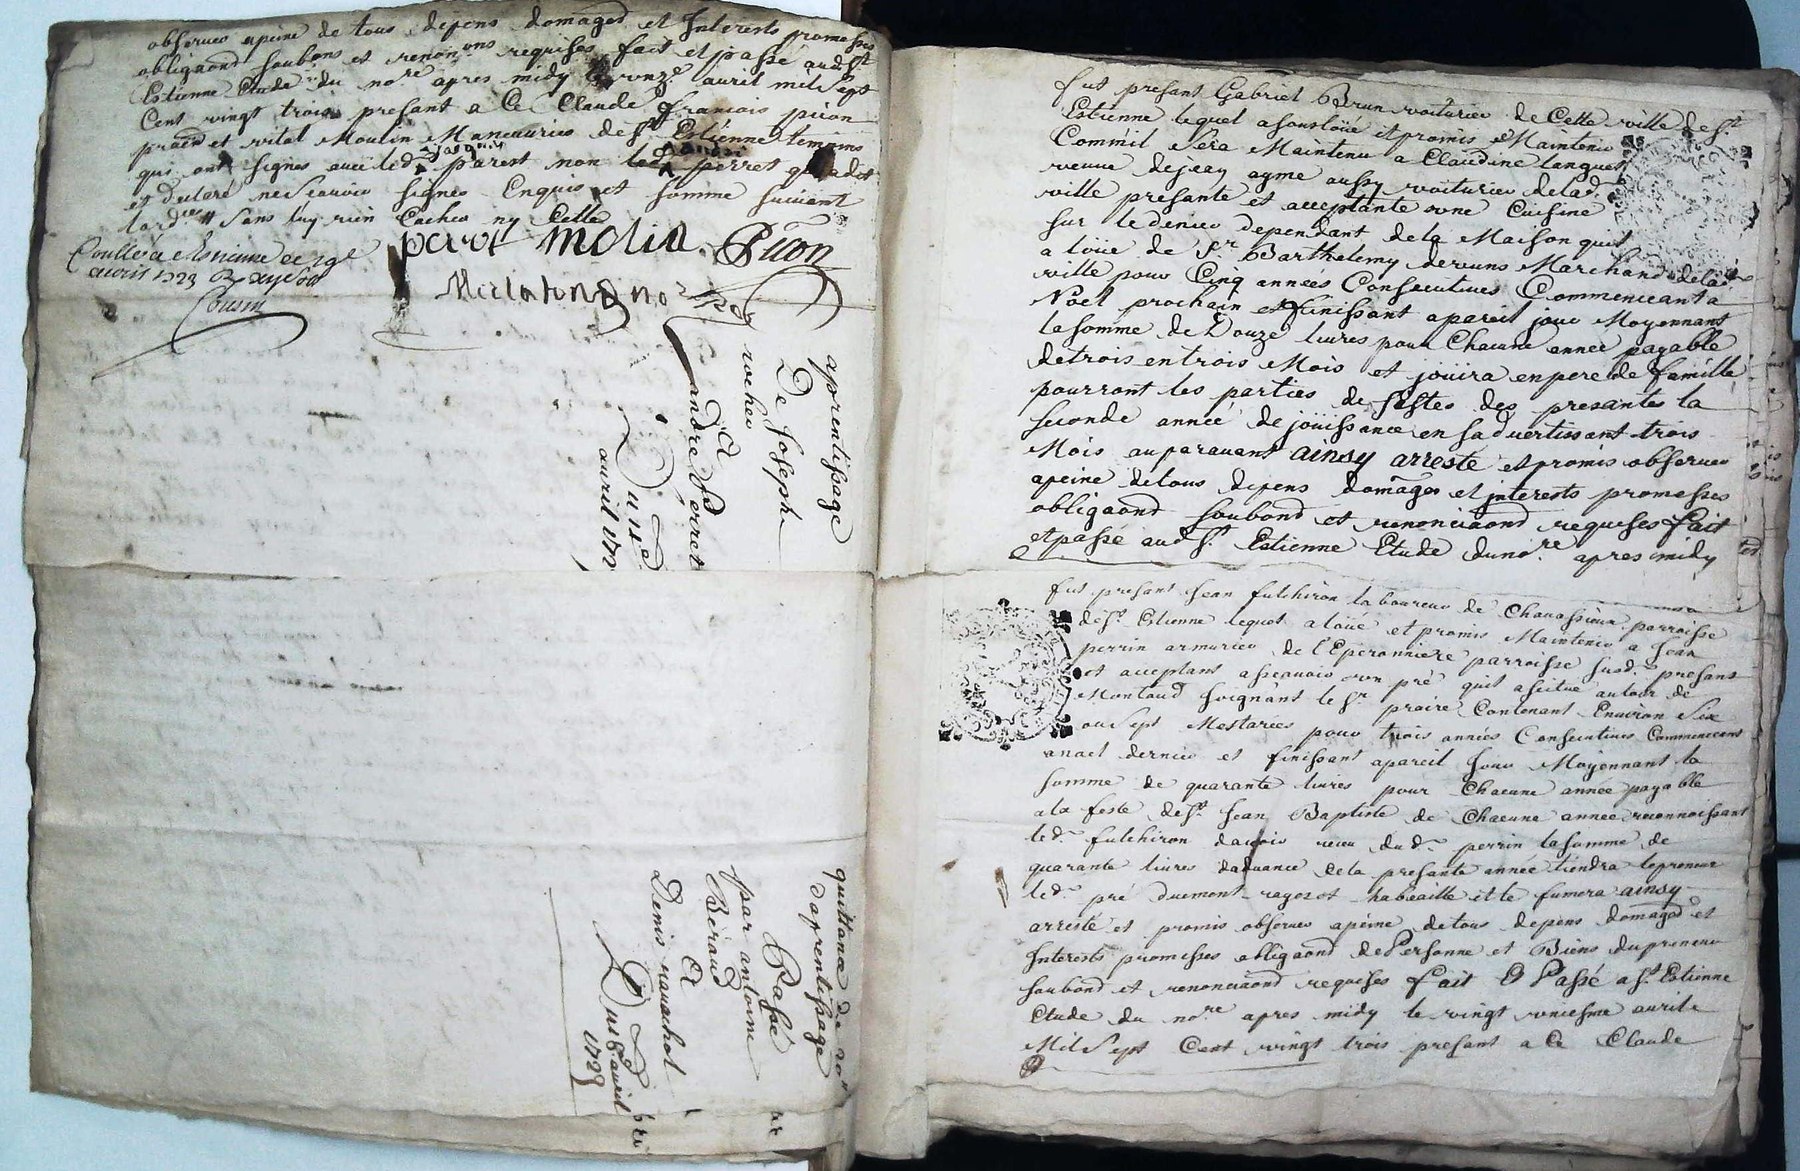 observer apeine de tous depens domages et Interests promesses
obligaond soubons et renonons requises fait et passé aud St
Estienne Etude du nore apres midy le unze avril mil sept
Cent vingt trois presant a Ce Claude francois pison
praen et vital Moulin Manouvrier de St Estienne temoins
qui ont signes avec led Jacques parest non led andré perret qui a dit
et declaré ne scavoir signer Enquis et somme suivant
lordce // sans luy rien Cacher ny Celler
perot molin Pison
Controlé a St Estienne ce 19e
avril 1723 R. Six sols
Cousin
aprentissage
De Joseph
rocher
a
andré Perret
Du 11e
avril 1723
quitance de 20ll
d'aprentissage
Passé
par antoine
Beraud
a
Denis ranachol
Du 18e avril
1723
fut presant Gabriel Brun voiturier de Cette ville de St
Estienne lequel a souslouë et promis Maintenir
Comme il sera Maintenu a Claudine languet
veuve de jean ayme aussy voiturier de lad.
ville presante et acceptante une Cuisine
sur le denier dependant de la Maison quil
a louë de Sr Barthelemy deruns Marchand de lad.
ville pour Cinq années Consecutives Commencant a
Noel prochain et finissant a pareil jour Moyennant
la somme de Douze livres pour Chacune année payable
de trois en trois Mois et joüira en pere de famille
pourront les parties de sistes des presantes la
seconde année de joüissance en sadvertissant trois
Mois auparavant ainsy arresté et promis observer
apeine de tous depens domages et interests promesses
obligaond soubond et renonciaond requises fait
et passé aud St Estienne Etude du nore apres midy
fut presant Jean fulchiron laboureur de Chanassieux parroisse
de St Estienne lequel a louë et promis Maintenir a Jean
perrin armurier de l'Eperonniere parroisse susd. presant
et acceptant asscavoir un pré quil a scitué autour de
Montaud joignant le Sr praire Contenant Environ Six
ou sept Mestarées pour trois années Consecutives Commencant
a noel dernier et finissant a pareil jour Moyennant la
somme de quarante livres pour Chacune année payable
a la feste de St Jean Baptiste de Chacune année reconnoissant
led. fulchiron d'avoir receu dud. perrin la somme de
quarante livres d'advance de la presante année tiendra le preneur
led. pré duement razes et habeaillé et le fumera ainsy
arresté et promis observer apeine de tous depens domages et
Interests promesses obligaond de Personne et Biens du preneur
soubond et renonciaond requises fait & Passé a St Estienne
Etude du nore apres midy le vingt uniesme avril
Mil Sept Cent vingt trois presant a Ce Claude